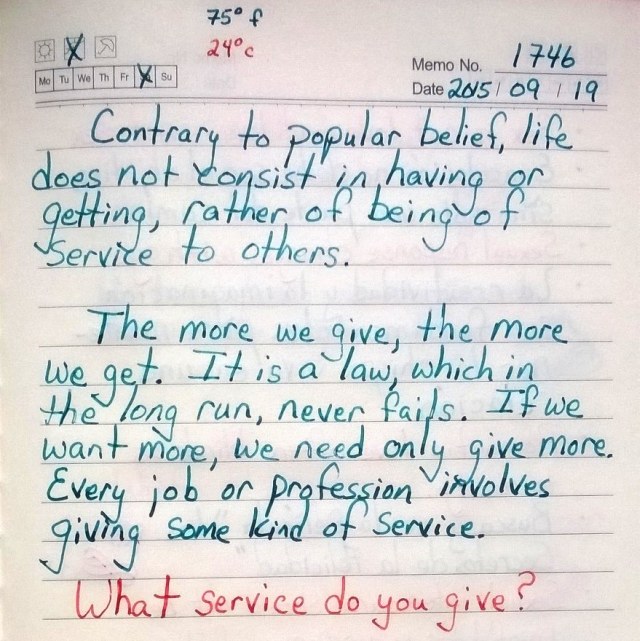 75° f
24°c
Memo No. 1746
Mo Tu We Th Fr Su
Date 2015 / 09 / 19
Contrary to popular belief, life
does not consist in having or
getting, rather of being of
service to others.
The more we give, the more
we get. It is a law, which in
the long run, never fails. If we
want more, we need only give more.
Every job or profession involves
giving some kind of service.
What service do you give?